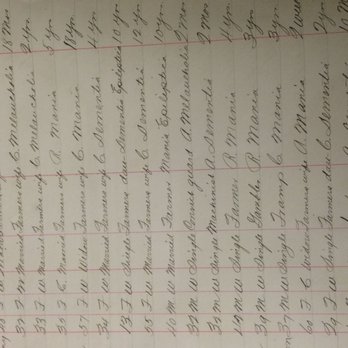 37 F W Married Farmers wife C. Melancholia 18 Mos
33 F W Married Farmers wife C. Melancholia 2 yrs
35 F C Married Farmers wife R. Mania 5 yrs
57 F W Widow Farmers wife C. Mania 18 yrs
F W Married Farmers wife C. Dementia 4 yrs
13 F W Single Farmers dau Dementia Epileptica 10 yrs
35 F W Married Farmers wife C. Dementia 12 yrs
40 M W Married Farmer Mania Epileptica 10 yrs
32 M W Single guard A. Melancholia 2 Mos
32 M W Single Machinist A. Dementia 2 Mos
M W Single Farmer R. Mania 4 yrs
M W Single Gambler R. Mania 3 yrs
37 M W Single Tramp C. Mania 3 yrs
60 F C Widow Farmers wife A. Mania
30 F W Single Farmers dau C. Dementia 2 yrs